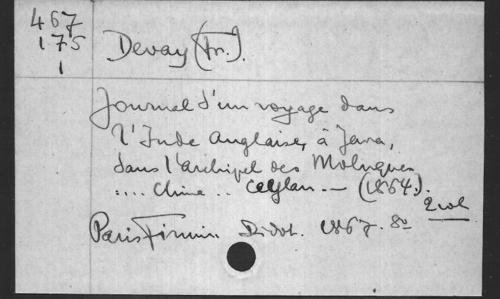 467
175
1
Devay (Fr.).
Journal d'un voyage dans
l'Inde anglaise, à Java,
dans l'archipel des Moluques
.... Chine .. Ceylan — (1864).
2 vol
Paris Firmin Didot. 1867. 8º